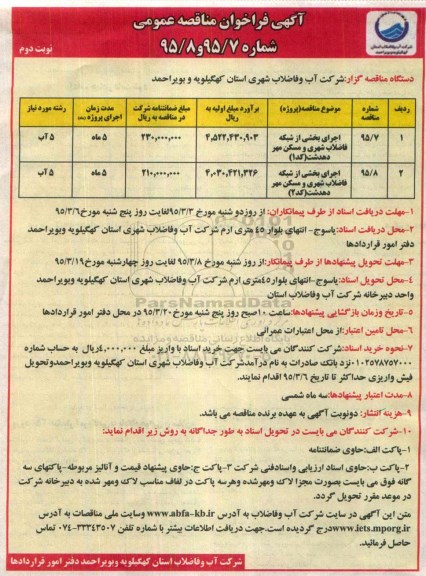 آگهی فراخوان مناقصه عمومی
شماره ۹۵/۷و۹۵/۸
نوبت دوم
دستگاه مناقصه گزار:شرکت آب وفاضلاب شهری استان کهگیلویه و بویراحمد
ردیف
شماره مناقصه
موضوع مناقصه(پروژه)
برآورد مبلغ اولیه به ریال
مبلغ ضمانتنامه شرکت در مناقصه به ریال
مدت زمان اجرای پروژه (ماه)
رشته مورد نیاز
۱
۹۵/۷
اجرای بخشی از شبکه فاضلاب شهری و مسکن مهر دهدشت(کد۱)
۴,۵۲۲,۴۳۰,۹۰۳
۲۳۰,۰۰۰,۰۰۰
۵ ماه
۵ آب
۲
۹۵/۸
اجرای بخشی از شبکه فاضلاب شهری و مسکن مهر دهدشت(کد۲)
۴,۰۳۰,۴۲۱,۳۲۶
۲۱۰,۰۰۰,۰۰۰
۵ ماه
۵ آب
۱-مهلت دریافت اسناد از طرف پیمانکاران: از روزدو شنبه مورخ ۹۵/۳/۳لغایت روز پنج شنبه مورخ۹۵/۳/۶
۲-محل دریافت اسناد:یاسوج- انتهای بلوار ۴۵ متری ارم شرکت آب وفاضلاب شهری استان کهگیلویه وبویراحمد
دفتر امور قراردادها
۳-مهلت تحویل پیشنهادها از طرف پیمانکار:از روز شنبه مورخ ۹۵/۳/۸ لغایت روز چهارشنبه مورخ۹۵/۳/۱۹
۴-محل تحویل اسناد:یاسوج-انتهای بلوار۴۵متری ارم شرکت آب وفاضلاب شهری استان کهگیلویه وبویراحمد
واحد دبیرخانه شرکت آب وفاضلاب استان
۵-تاریخ وزمان بازگشایی پیشنهادها:ساعت ۱۰صبح روز پنج شنبه مورخ۹۵/۳/۲۰ در محل دفتر امور قراردادها
ParsNamadData
۶-محل تامین اعتبار:از محل اعتبارات عمرانی
۷-نحوه خرید اسناد:شرکت کنندگان می بایست جهت خرید اسناد با واریز مبلغ ۴,۰۰۰,۰۰۰ریال به حساب شماره
۰۱۰۲۵۷۸۷۵۷۰۰۰نزد بانک صادرات به نام درآمدشرکت آب وفاضلاب شهری استان کهگیلویه وبویراحمدوتحویل
فیش واریزی حداکثر تا تاریخ ۹۵/۳/۶ اقدام نمایند.
۸-مدت اعتبار پیشنهادها:سه ماه شمسی
۹-هزینه انتشار: دونوبت آگهی به عهده برنده مناقصه می باشد.
۱۰-شرکت کنندگان می بایست در تحویل اسناد به طور جداگانه به روش زیر اقدام نمایند:
۱-پاکت الف:حاوی ضمانتنامه
۲-پاکت ب:حاوی اسناد ارزیابی واسنادفنی شرکت ۳-پاکت ج:حاوی پیشنهاد قیمت و آنالیز مربوطه-پاکتهای سه
گانه فوق می بایست بصورت مجزا لاک ومهرشده وهرسه پاکت در لفاف مناسب لاک ومهر شده به دبیرخانه شرکت
در موعد مقرر تحویل گردد.
متن این آگهی در سایت شرکت آب وفاضلاب به آدرس www.abfa-kb.ir وسایت ملی مناقصات به آدرس
www.iets.mporg.irدرج گردیده است.جهت دریافت اطلاعات بیشتر با شماره تلفن ۳۳۳۴۳۵۰۷-۰۷۴ تماس
حاصل فرمائید.
شرکت آب وفاضلاب استان کهگیلویه وبویراحمد دفتر امور قراردادها